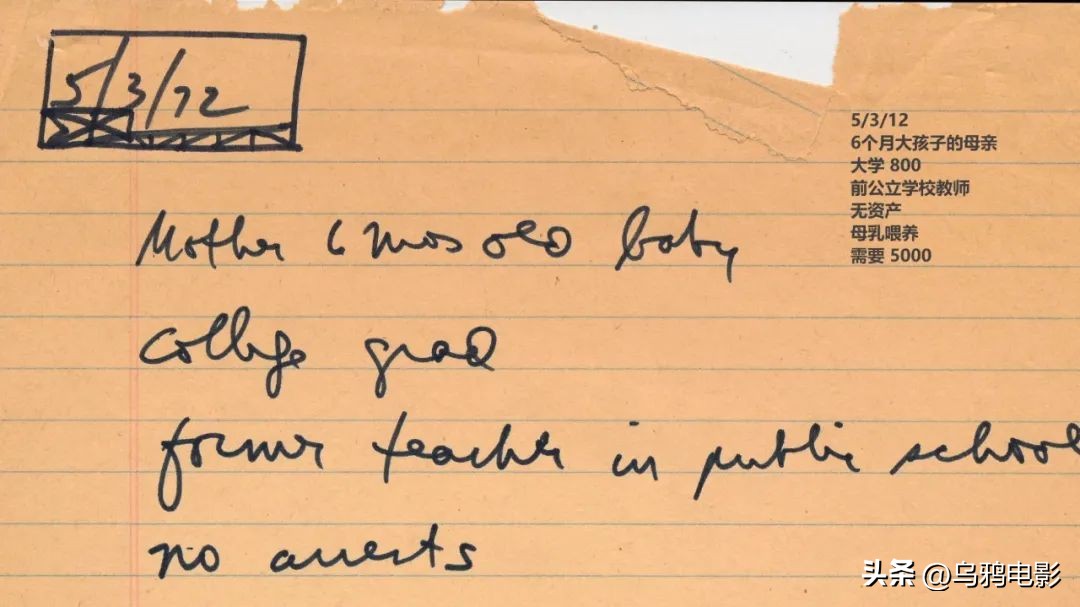 5/3/72
Mother 6 mos old baby
College grad
former teacher in public school
no arrests
5/3/12
6个月大孩子的母亲
大学 800
前公立学校教师
无资产
母乳喂养
需要 5000
头条 @乌鸦电影